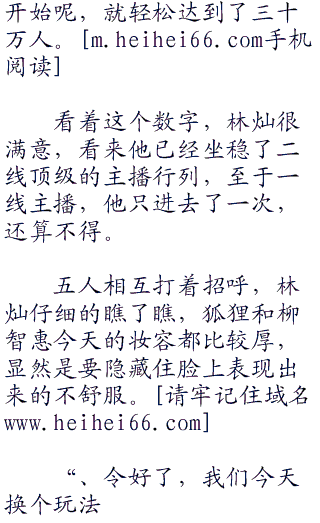 开始呢，就轻松达到了三十
万人。[m.heihei66.com手机
阅读]
看着这个数字，林灿很
满意，看来他已经坐稳了二
线顶级的主播行列，至于一
线主播，他只进去了一次，
还算不得。
五人相互打着招呼，林
灿仔细的瞧了瞧，狐狸和柳
智惠今天的妆容都比较厚，
显然是要隐藏住脸上表现出
来的不舒服。[请牢记住域名
www.heihei66.com]
“、令好了，我们今天
换个玩法